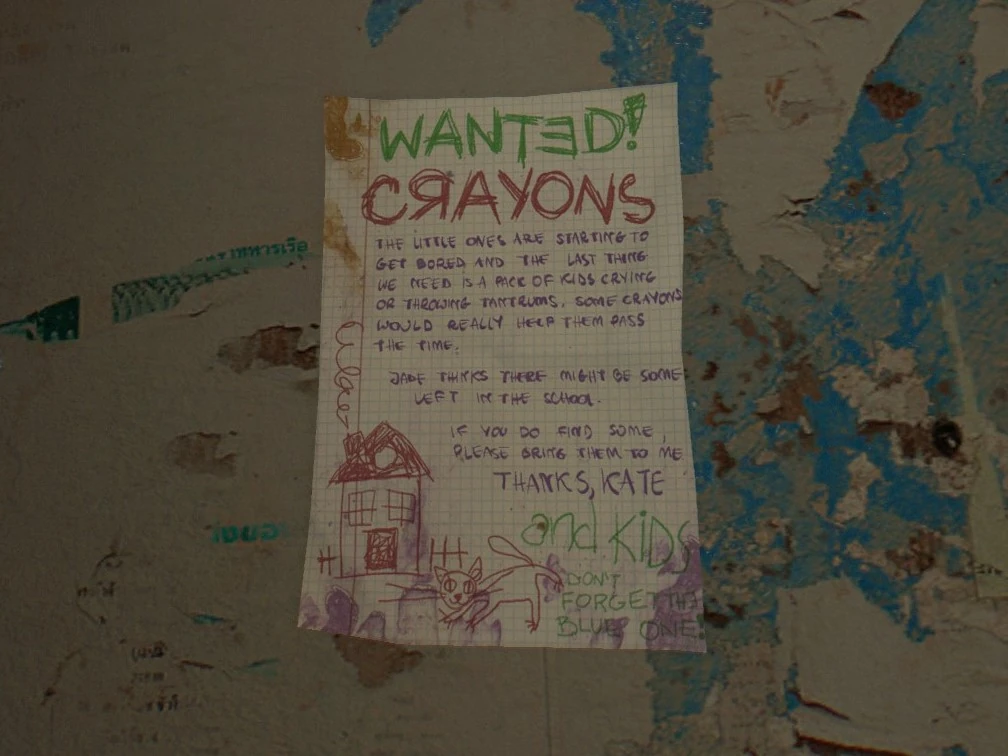 WANTED!
CRAYONS
THE LITTLE ONES ARE STARTING TO
GET BORED AND THE LAST THING
WE NEED IS A PACK OF KIDS CRYING
OR THROWING TANTRUMS. SOME CRAYONS
WOULD REALLY HELP THEM PASS
THE TIME.
JADE THINKS THERE MIGHT BE SOME
LEFT IN THE SCHOOL.
IF YOU DO FIND SOME,
PLEASE BRING THEM TO ME
THANKS, KATE
and KIDS
DON'T
FORGET THE
BLUE ONE!